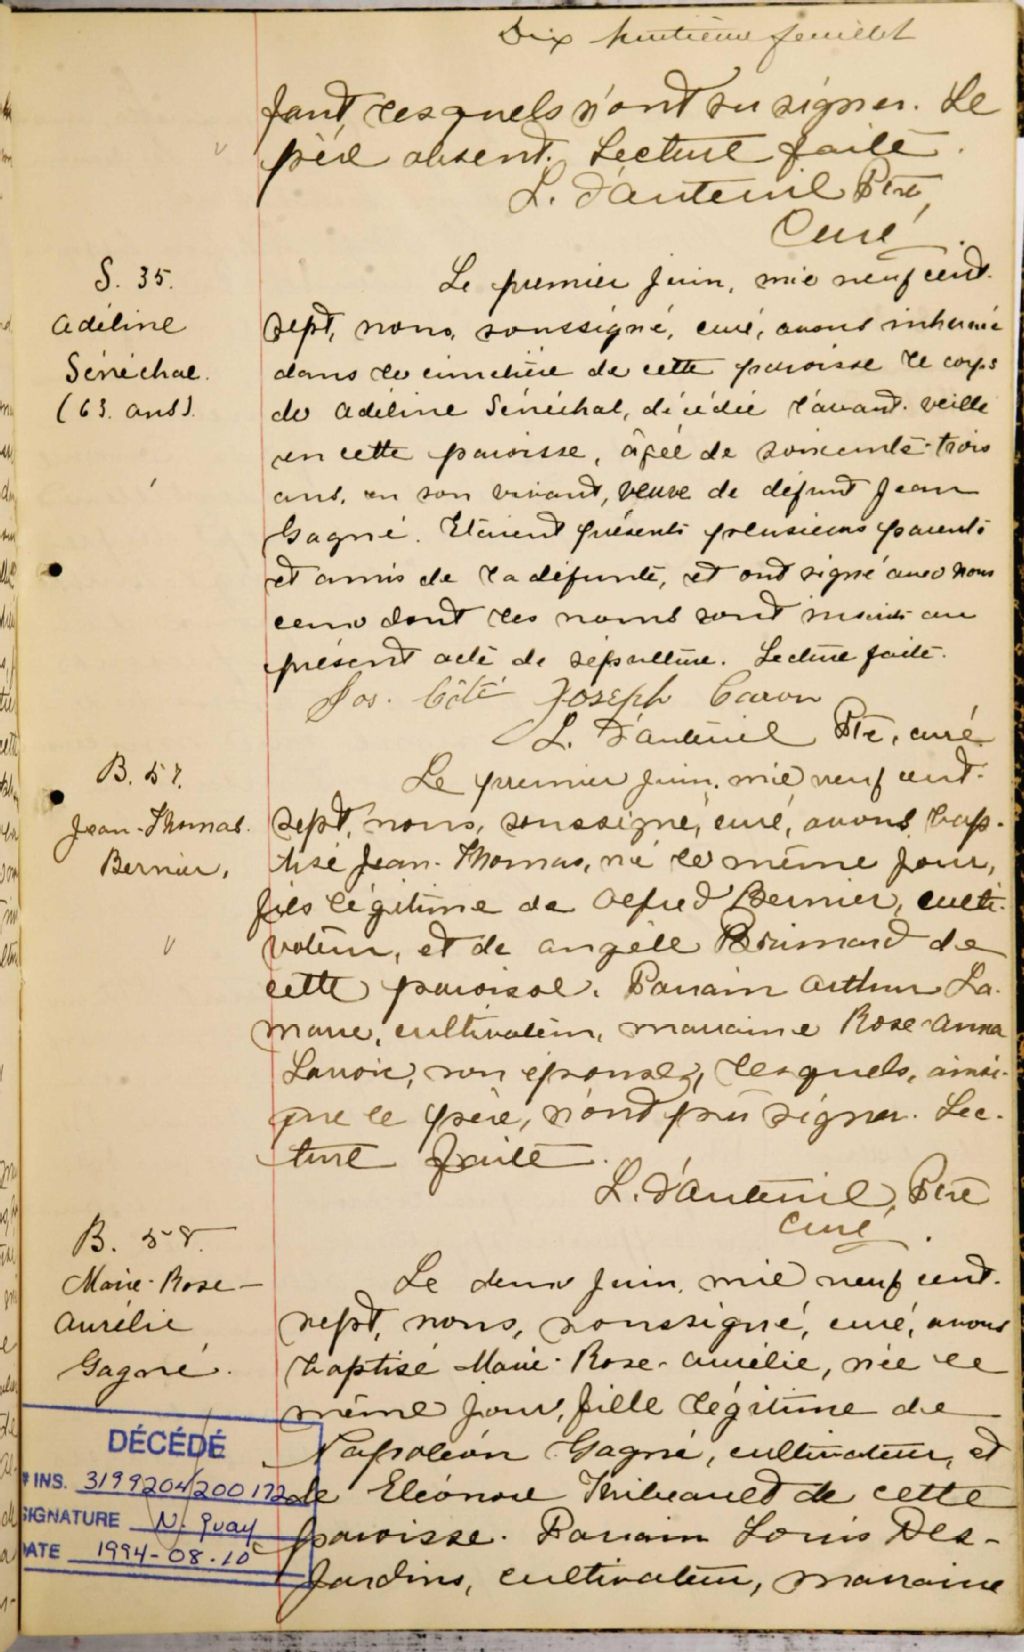 Dix huitième feuillet
fant lesquels n'ont su signer. Le
père absent. Lecture faite.
L. D'auteuil Ptre,
Curé
S. 35.
Adéline
Sénéchal.
(63. ans).
Le premier juin, mil neuf cent.
sept, nous, soussigné, curé, avons inhumé
dans le cimetière de cette paroisse le corps
de Adéline Sénéchal, décédée l'avant-veille
en cette paroisse, âgée de soixante-trois
ans, en son vivant, veuve de défunt Jean
Gagné. Etaient présents plusieurs parents
et amis de la défunte, et ont signé avec nous
ceux dont les noms sont inscrits au
présent acte de sépulture. Lecture faite.
Jos. Côté Joseph Caron
L. D'auteuil Ptre, curé
B. 57.
Jean-Thomas.
Bernier,
Le premier juin, mil neuf cent.
sept, nous, soussigné, curé, avons bap-
tisé Jean-Thomas, né le même jour,
fils légitime de Alfred Bernier, culti-
vateur, et de Angèle Brimard de
cette paroisse. Parrain Arthur La-
marre, cultivateur, marraine Rose-Anna
Lavoie, son épouse, lesquels, ainsi-
que le père, n'ont pu signer. Lec-
ture faite.
L. D'auteuil, Ptre
Curé
B. 58.
Marie-Rose-
Aurélie
Gagné.
Le deux juin, mil neuf cent.
sept, nous, soussigné, curé, avons
baptisé Marie-Rose-Aurélie, née le
même jour, fille légitime de
Napoléon Gagné, cultivateur, et
de Eléonore Thibeault de cette
paroisse. Parrain Louis Des-
jardins, cultivateur, marraine
DÉCÉDÉ
# INS. 3199204/200172
SIGNATURE N. Quay
DATE 1994-08-10